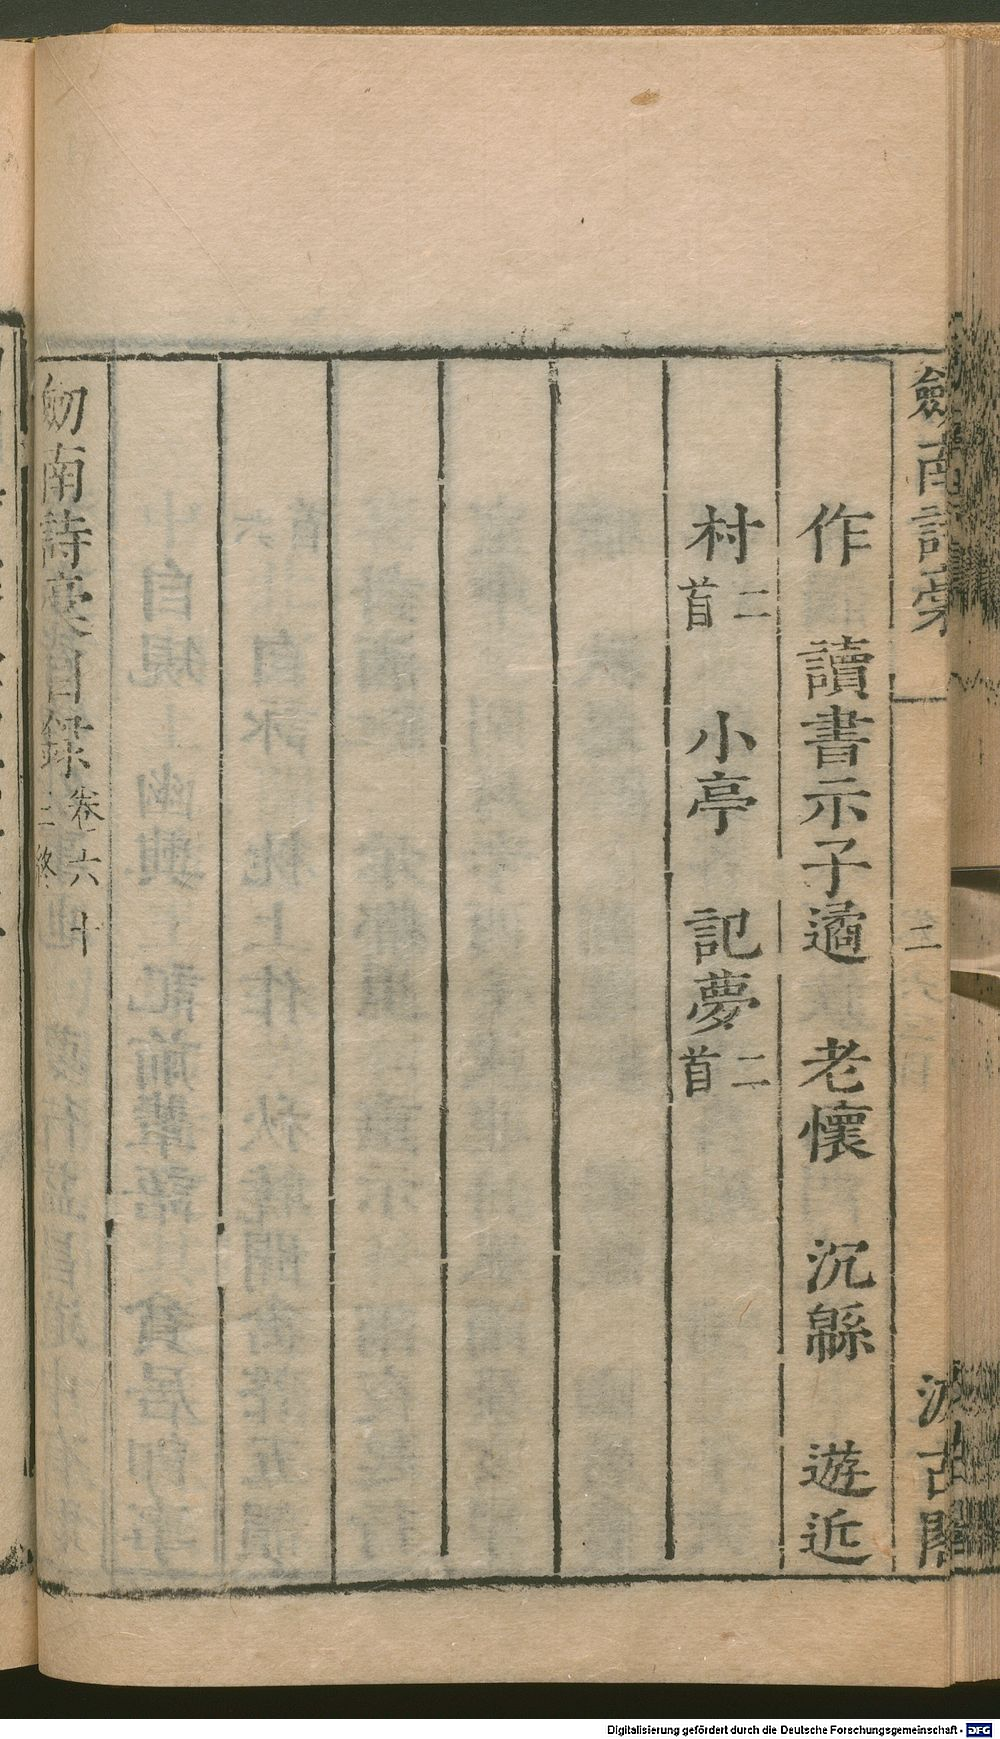 劔南詩稾
二
汲古閣
作　讀書示子遹　老懷　沉緜　遊近
村二首　小亭　記夢二首
劔南詩稾目錄卷六十二終
Digitalisierung gefördert durch die Deutsche Forschungsgemeinschaft - DFG